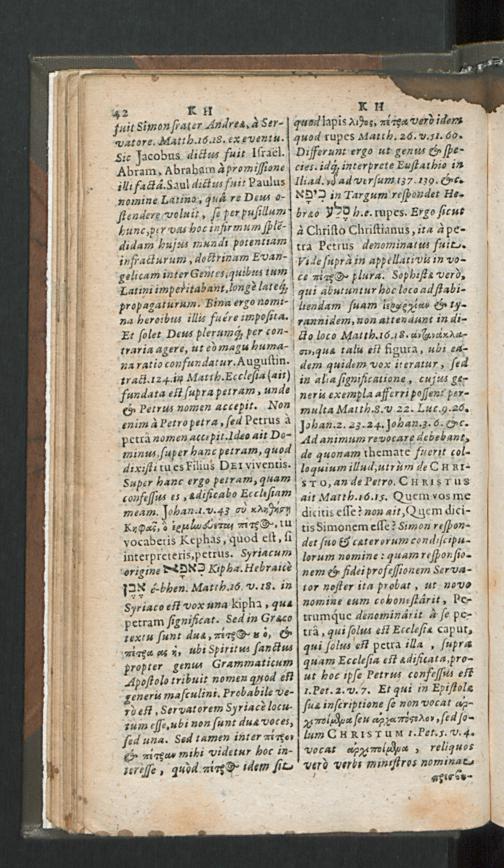 42
K H
fuit Simon frater Andreæ, à Ser-
vatore. Matth.16.18. ex eventu.
Sic Jacobus dictus fuit Israel.
Abram, Abraham à promissione
illi factâ. Saul dictus fuit Paulus
nomine Latino, quâ re Deus o-
stendere voluit, se per pusillum
hunc, per vas hoc infirmum splē-
didam hujus mundi potentiam
infracturum, doctrinam Evan-
gelicam inter Gentes, quibus tum
Latini imperitabant, longè lateq́;
propagaturum. Bina ergo nomi-
na heroibus illis fuêre imposita.
Et solet Deus plerumq́; per con-
traria agere, ut eò magis huma-
na ratio confundatur. Augustin.
tract.124.in Matth. Ecclesia (ait)
fundata est supra petram, unde
& Petrus nomen accepit. Non
enim à Petro petra, sed Petrus à
petrâ nomen accepit. Ideo ait Do-
minus, super hanc petram, quod
dixisti tu es Filius DEI viventis.
Super hanc ergo petram, quam
confessus es, ædificabo Ecclesiam
meam. Johan.1.v.43 σὺ κληθήσῃ
Κηφᾶς, ὃ ἑρμηνεύεται πέτρος, tu
vocaberis Kephas, quod est, si
interpreteris, petrus. Syriacum
origine כאפא Kipha. Hebraicè
אבן é-bhen. Matth.16.v.18. in
Syriaco est vox una kipha, quæ
petram significat. Sed in Græco
textu sunt duæ, πέτρος ὁ, &
πέτρα ας ἡ, ubi Spiritus sanctus
propter genus Grammaticum
Apostolo tribuit nomen quod est
generis masculini. Probabile ve-
rò est, Servatorem Syriacè locu-
tum esse, ubi non sunt duæ voces,
sed una. Sed tamen inter πέτρος
& πέτραν mihi videtur hoc in-
teresse, quòd πέτρος idem sit
K H
quod lapis λίθος, πέτρα verò idem
quod rupes Matth. 26. v.51.60.
Differunt ergo ut genus & spe-
cies. idq́; interprete Eustathio in
Iliad. ad versum 137. 139. &c.
כיפא in Targum respondet He-
bræo סלע h.e. rupes. Ergo sicut
à Christo Christianus, ita à pe-
trâ Petrus denominatus fuit.
Vide suprà in appellativis in vo-
ce πέτρος plura. Sophistæ verò,
qui abutuntur hoc loco ad stabi-
liendam suam ἱεραρχίαν & ty-
rannidem, non attendunt in di-
cto loco Matth.16.18. ἀντανάκλα-
σιν, quæ talis est figura, ubi ea-
dem quidem vox iteratur, sed
in alia significatione, cujus ge-
neris exempla afferri possent per-
multa Matth.8.v 22. Luc.9.26.
Johan.2. 23.24. Johan.3. 6. &c.
Ad animum revocare debebant,
de quonam themate fuerit col-
loquium illud, utrùm de CHRI-
STO, an de Petro. CHRISTUS
ait Matth.16.15. Quem vos me
dicitis esse? non ait, Quem dici-
tis Simonem esse? Simon respon-
det suo & cæterorum condiscipu-
lorum nomine: quam responsio-
nem & fidei professionem Serva-
tor noster ita probat, ut novo
nomine eum cohonestârit, Pe-
trumque denominârit à se pe-
trâ, qui solus est Ecclesiæ caput,
qui solus est petra illa, supra
quam Ecclesia est ædificata, pro-
ut hoc ipse Petrus confessus est
1.Pet. 2. v. 7. Et qui in Epistolæ
suæ inscriptione se non vocat ἀρ-
χιποίμενα seu ἀρχαπόστολον, sed so-
lum CHRISTUM 1.Pet. 5. v.4.
vocat ἀρχιποίμενα, reliquos
verò verbi ministros nominat
πρεσβυ-